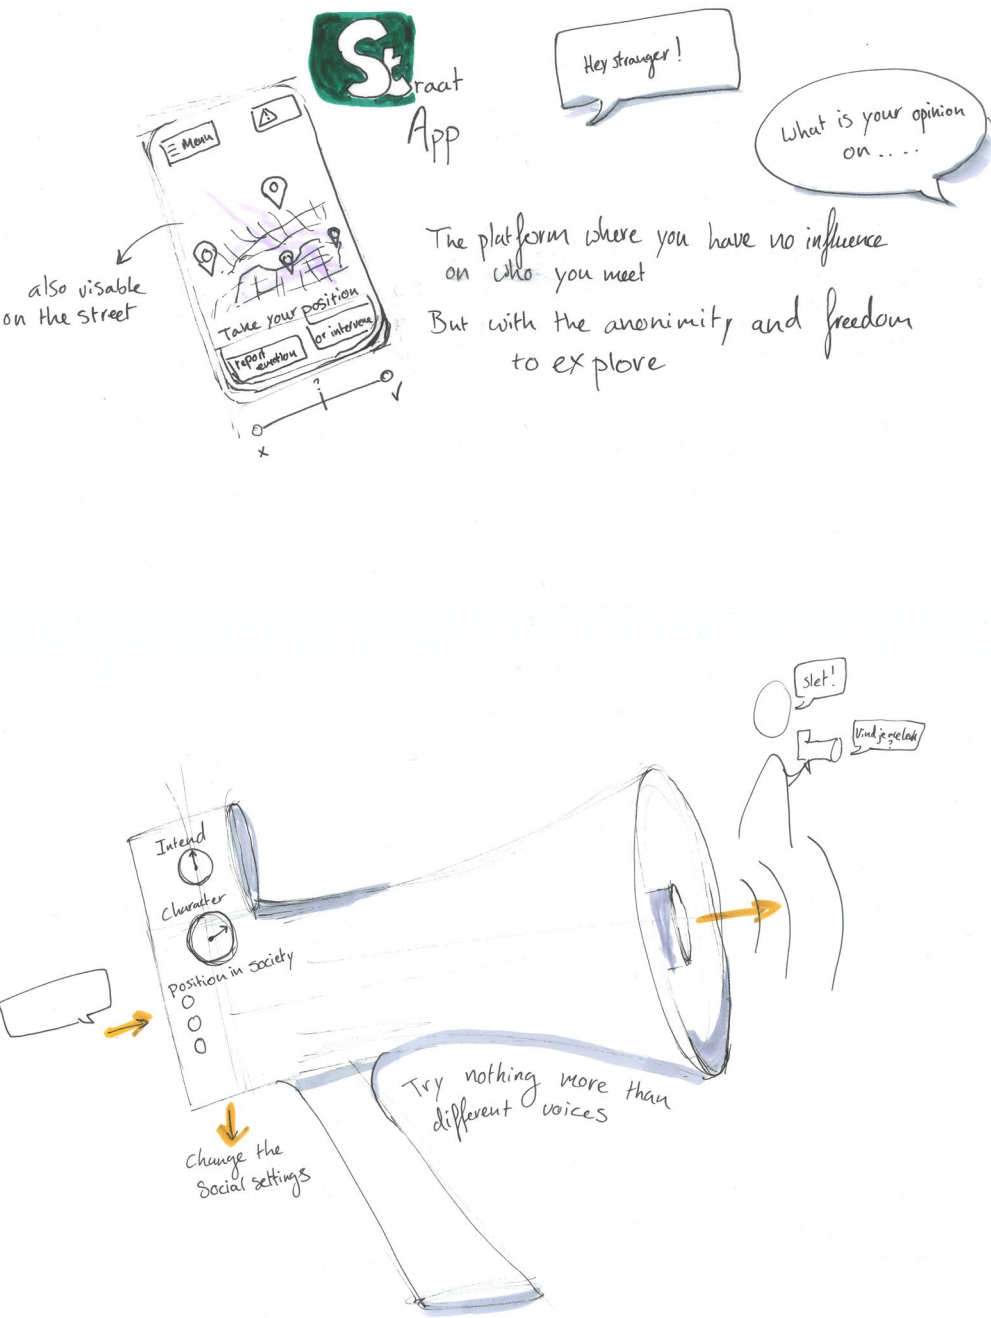 Straat
App
Hey stranger!
What is your opinion
on....
Menu
also visable
on the street
Take your position
report
emotion
or intervene
?
x
✓
The platform where you have no influence
on who you meet
But with the anonimity and freedom
to explore
Slet!
Vind je me leuk
?
Intend
Character
Position in society
Try nothing more than
different voices
Change the
Social settings